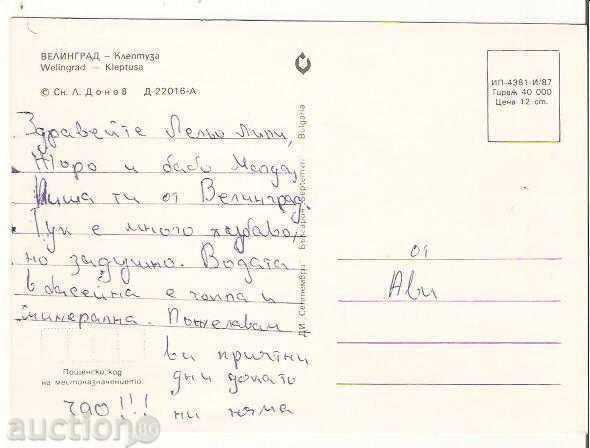 ВЕЛИНГРАД – Клептуза
Welingrad — Kleptusa
© Сн. Л. Донов Д-22016-А
ИП-4381-И/87
Тираж 40 000
Цена 12 ст.
Здравейте Лельо Лили,
Жоро и бабо Магда,
Пиша ти от Велинград.
Тук е много хубаво,
но задушно. Водата
в басейна е топла и
минерална. Пожелавам
ви приятни
дни докато
ни няма
чао!!!
от
Ави
Пощенски код
на местоназначението
ДИ „Септември" Български Bulgaria
auction.BG